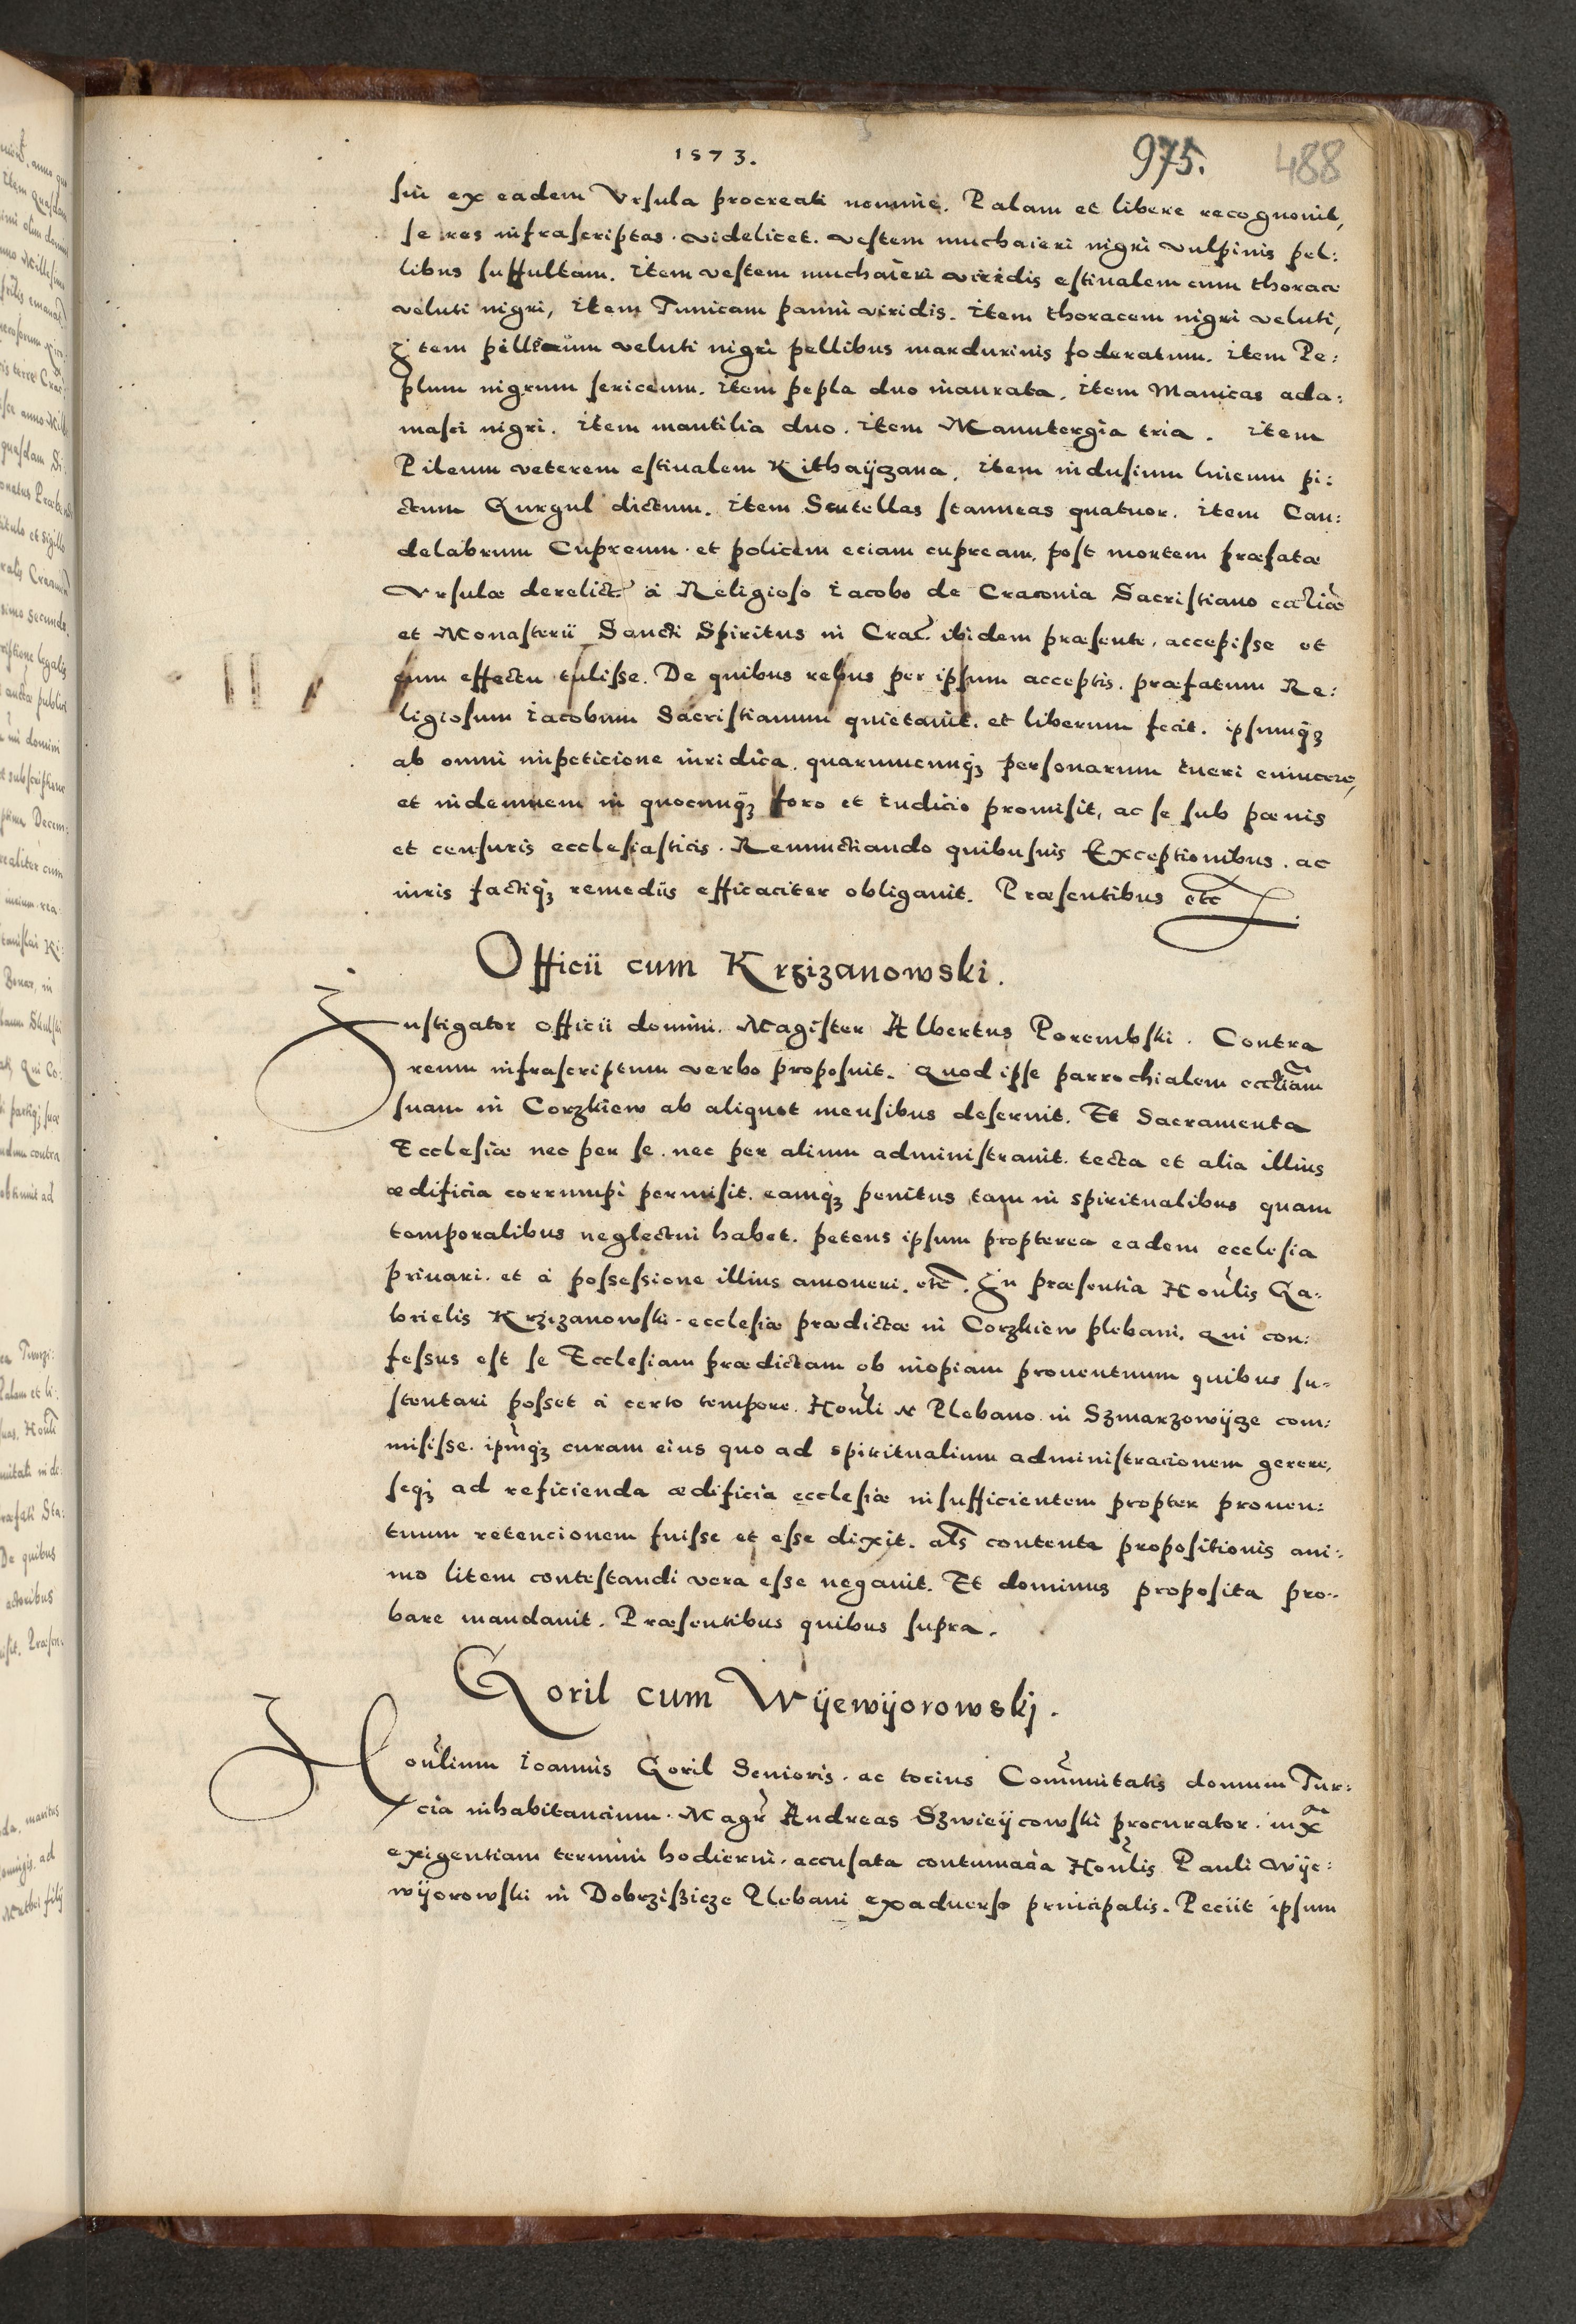 1573.
975. 488
sui ex eadem Vrsula procreati nomine. Palam et libere recognouit,
se res infrascriptas. videlicet. vestem muchaieri nigri vulpinis pel:
libus suffultam. Item vestem muchaieri viridis estiualem cum thorace
veluti nigri, Item Tunicam panni viridis. Item thoracem nigri veluti,
Item veluti nigri pellibus mardurinis foderatum. Item Pe:
plum nigrum sericeum. Item pepla duo inaurata. Item Manicas ada:
masci nigri. Item mantilia duo. Item Manutergia tria. Item
Pileum veterem estiualem Kithaÿczana. Item indusium lineum pi:
ctum Gurgul dictum. Item Scutellas stanneas quatuor. Item Can:
delabrum Cupreum. et policem eciam cupream. post mortem præfatæ
Vrsulæ derelict' à Religioso Iacobo de Cracouia Sacristiano eccliæ
et Monasterii Sancti Spiritus in Crac. ibidem præsente. accepisse et
cum effectu tulisse. De quibus rebus per ipsum acceptis. præfatum Re:
ligiosum Iacobum Sacristianum quietauit. et liberum fecit. ipsumq́ꝫ
ab omni impeticione iuridica. quarumcunq́ꝫ personarum tueri euincere,
et indemnem in quocunq́ꝫ foro et Iudicio promisit, ac se sub pœnis
et censuris ecclesiasticis. Renunctiando quibusuis Exceptionibus. ac
iuris factiq́ꝫ remediis efficaciter obligauit. Præsentibus etc
Officii cum Krzizanowski.
Instigator officii domini. Magister Albertus Porembski. Contra
reum infrascriptum verbo proposuit. Quod ipse parrochialem eccliam
suam in Corzkiew ab aliquot mensibus deseruit. Et Sacramenta
Ecclesiæ nec per se. nec per alium administrauit. tecta et alia illius
ædificia corrumpi permisit. eamq́ꝫ penitus tam in spiritualibus quam
temporalibus neglectui habet. petens ipsum propterea eadem ecclesia
priuari. et à possessione illius amoueri. etc. In præsentia Honlis Ga:
brielis Krzizanowski. ecclesiæ prædictæ in Corzkiew plebani. Qui con:
fessus est se Ecclesiam prædictam ob inopiam prouentuum quibus su-
stentari posset à certo tempore. Honli N Plebano in Szmarzowÿcze com:
misisse. ipmq́ꝫ curam eius quo ad spiritualium administracionem gerere,
seq́ꝫ ad reficienda ædificia ecclesiæ insufficientem propter prouen:
tuum retencionem fuisse et esse dixit. als contenta propositionis ani:
mo litem contestandi vera esse negauit. Et dominus proposita pro:
bare mandauit. Præsentibus quibus supra.
Goril cum Wÿewÿorowskj.
Honlium Ioannis Goril Senioris. ac tocius Comunitatis domum Tur:
cia inhabitancium. Magr Andreas Szwieÿcowski procurator. iuxa
exigentiam termini hodierni. accusata contumacia Honlis Pauli Wÿe:
wÿorowski in Dobrzisßicze Plebani exaduerso principalis. Peciit ipsum